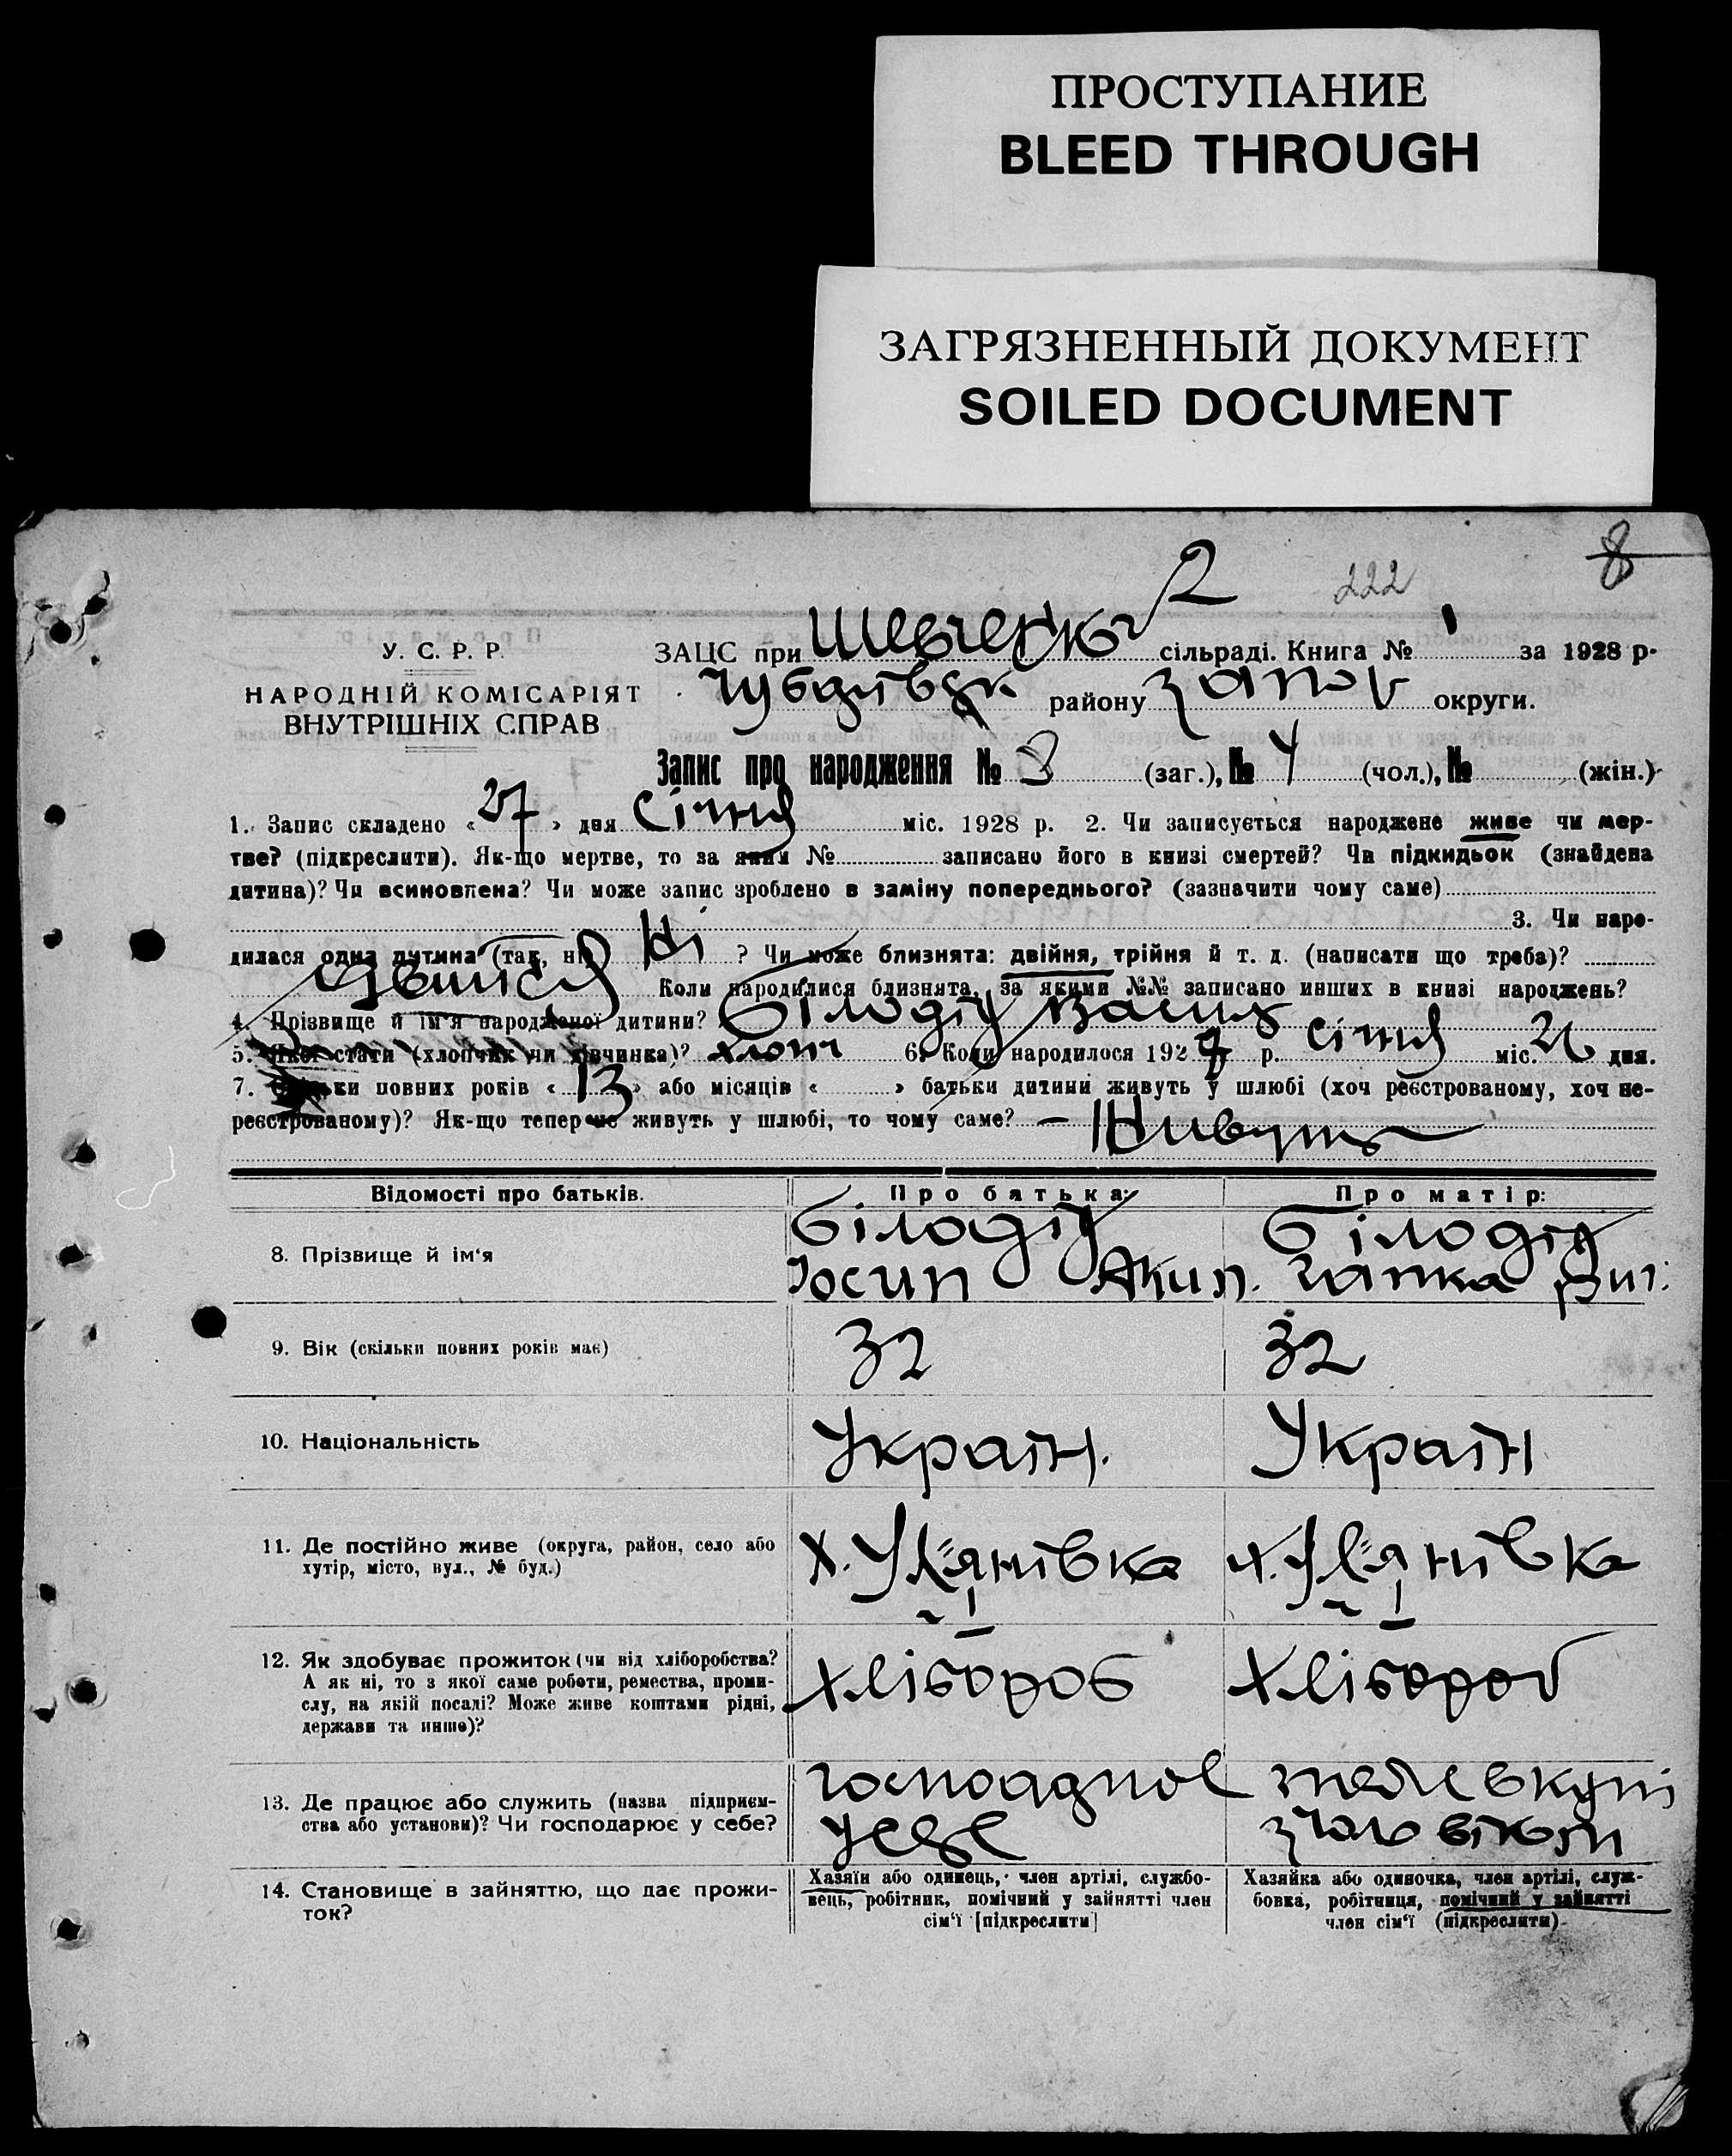 ПРОСТУПАНИЕ
BLEED THROUGH
ЗАГРЯЗНЕННЫЙ ДОКУМЕНТ
SOILED DOCUMENT
2 222 8
У. С. Р. Р.
НАРОДНІЙ КОМІСАРІЯТ
ВНУТРІШНІХ СПРАВ
ЗАЦС при Шевченко сільраді. Книга № 1 за 1928 р.
району Запор округи.
Запис про народження № 3 (заг.), № 4 (чол.), № (жін.)
1. Запис складено « 27 » дня січня міс. 1928 р. 2. Чи записується народжене живе чи мер-
тве? (підкреслити). Як-що мертве, то за яким № записано його в книзі смертей? Чи підкидьок (знайдена
дитина)? Чи всиновлена? Чи може запис зроблено в заміну попереднього? (зазначити чому саме)
3. Чи наро-
дилася одна дитина (так, ні) Ні ? Чи може близнята: двійня, трійня й т. д. (написати що треба)?
двійня Коли народилися близнята, за якими №№ записано инших в книзі народжень?
4. Прізвище й ім'я народженої дитини? Білодід
5. Якої стати (хлопчик чи дівчинка)? хлопч 6. Коли народилося 192 р. січня міс. 26 дня.
7. Скільки повних років « 13 » або місяців « » батьки дитини живуть у шлюбі (хоч реєстрованому, хоч не-
реєстрованому)? Як-що тепер не живуть у шлюбі, то чому саме? — Живуть
Відомості про батьків. Про батька: Про матір:
8. Прізвище й ім'я
Білодід Білодід
Йосип Акип. Ганка
9. Вік (скільки повних років має) 32 32
10. Національність Україн. Україн
11. Де постійно живе (округа, район, село або
хутір, місто, вул., № буд.)
х. Улянівка х. Улянівка
12. Як здобуває прожиток (чи від хліборобства?
А як ні, то з якої саме роботи, ремества, проми-
слу, на якій посаді? Може живе коштами рідні,
держави та инше)?
Хлібороб Хлібороб
13. Де працює або служить (назва підприєм-
ства або установи)? Чи господарює у себе?
у себе з чоловіком
14. Становище в зайняттю, що дає прожи-
ток?
Хазяїн або одинець, член артілі, службо-
вець, робітник, помічний у зайнятті член
сім'ї [підкреслити]
Хазяйка або одиночка, член артілі, служ-
бовка, робітниця, помічний у зайнятті
член сім'ї (підкреслити)